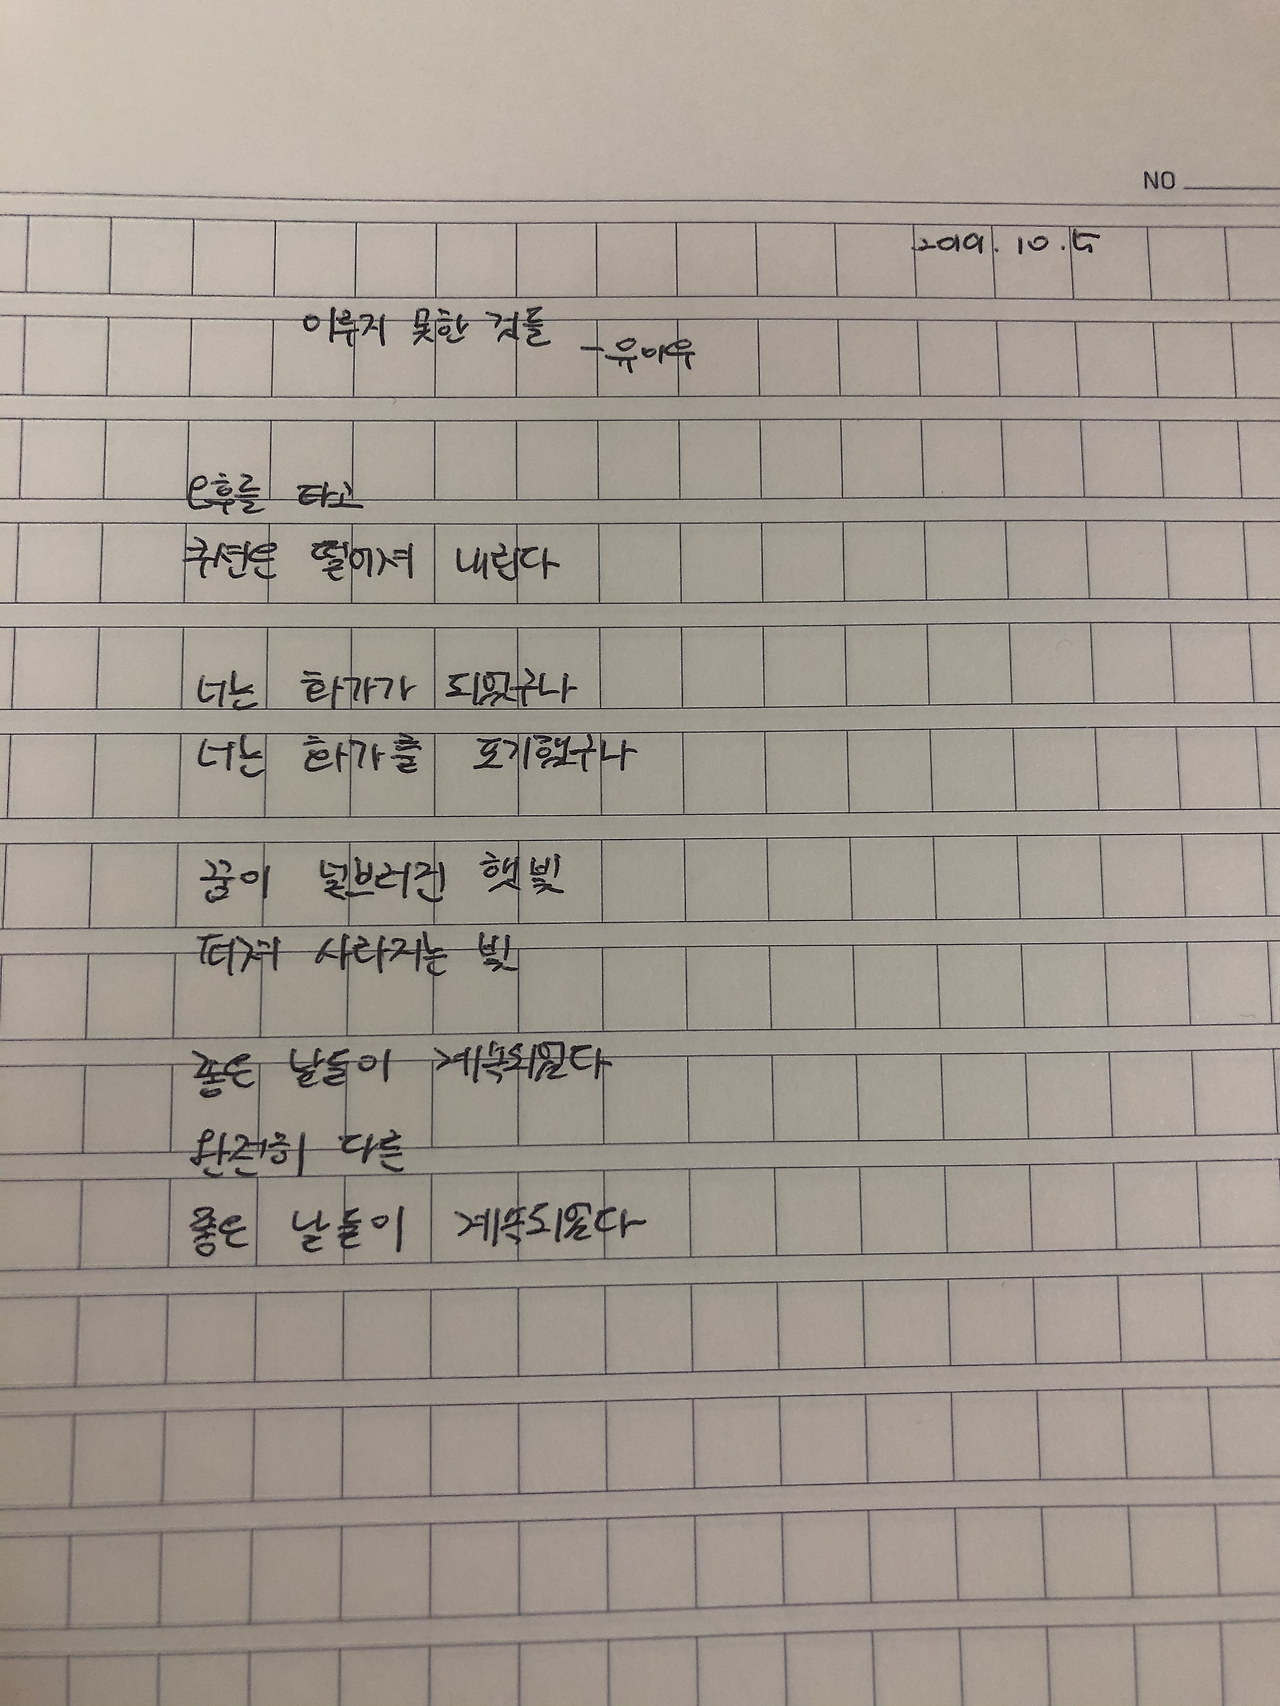 NO
2019. 10. 5
이루지 못한 것들
- 유이우
오후를 타고
쿠션은 떨어져 내린다
너는 화가가 되었구나
너는 화가를 포기했구나
꿈이 널브러진 햇빛
터져 사라지는 빛
좋은 날들이 계속되었다
완전히 다른
좋은 날들이 계속되었다